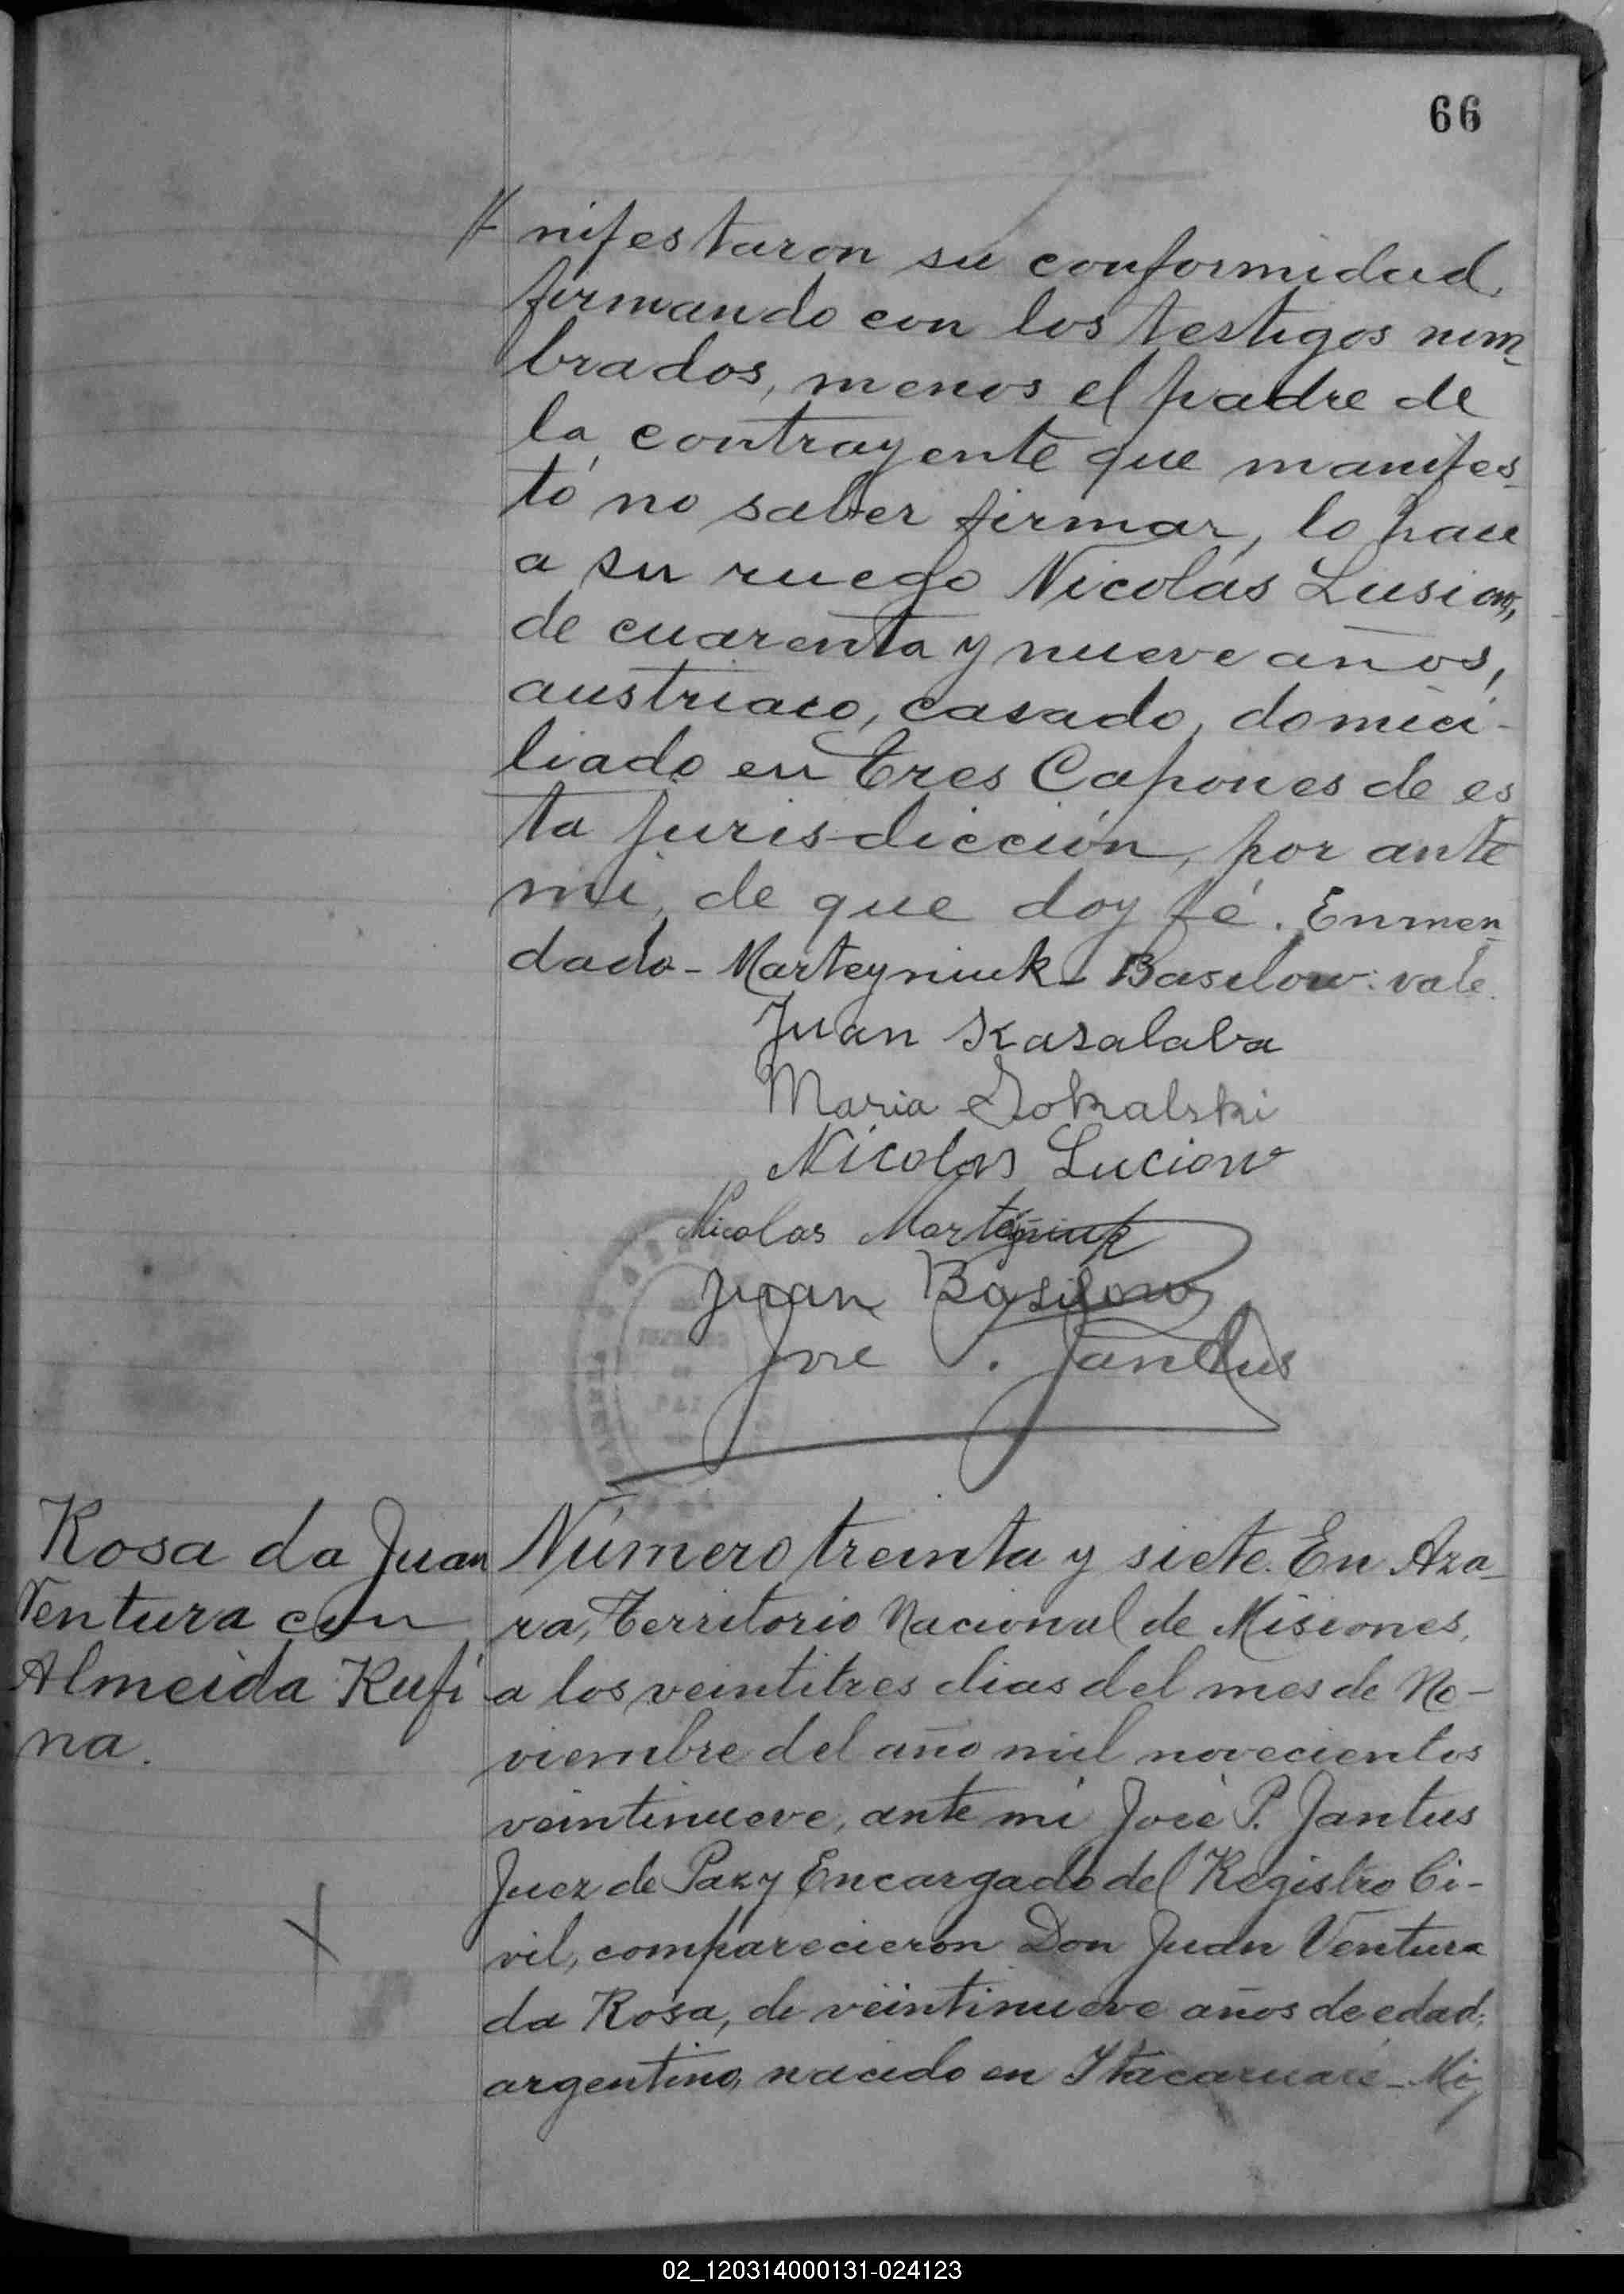 66
nifestaron su conformidad,
firmando con los testigos nom-
brados, menos el padre de
la contrayente que manifes-
tó no saber firmar, lo hace
a su ruego Nicolás Lusiow,
de cuarenta y nueve años,
austriaco, casado, domici-
liado en Tres Capones de es
ta jurisdicción, por ante
mi, de que doy fé. Enmen-
dado - Marteyniuk - Basilow: vale.
Juan Kasalaba
Maria Sokalski
Nicolas Luciow
Nicolas Marteyniuk
Juan Basilow
Jose P. Jantus
Rosa da Juan
Ventura con
Almeida Rufi
na.
Número treinta y siete. En Aza-
ra, Territorio Nacional de Misiones,
a los veintitres dias del mes de No-
viembre del año mil novecientos
veintinueve, ante mi José P. Jantus
Juez de Paz y Encargado del Registro Ci-
vil, comparecieron Don Juan Ventura
da Rosa, de veintinueve años de edad,
argentino, nacido en Itacaruaré - Mi-
X
02_120314000131-024123